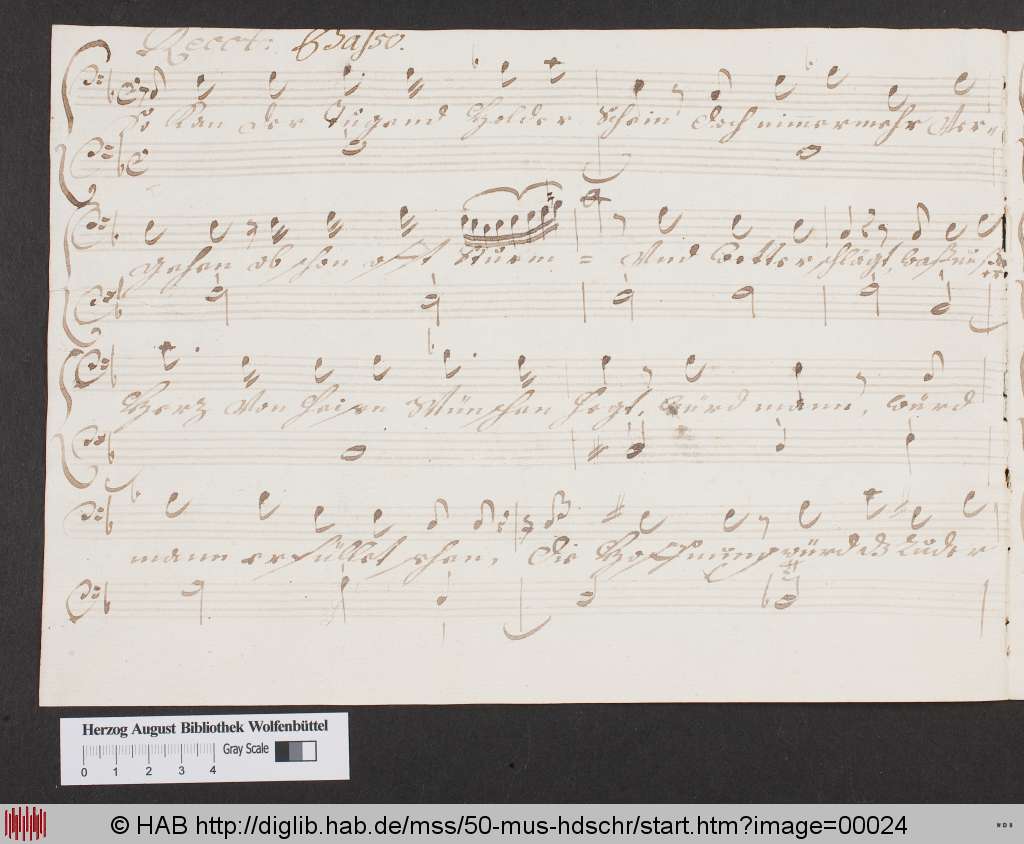 Recit: Basso.
So kan der Tugend Holder Schein doch nimermehr Ver=
gehen ob schon offt Sturm = Und Wetter schlägt,
Herz Von heisen Wünschen hegt, würd mann, würd
mann erfüllet sehen, die Hoffnung würd
Herzog August Bibliothek Wolfenbüttel
Gray Scale
0 1 2 3 4
© HAB http://diglib.hab.de/mss/50-mus-hdschr/start.htm?image=00024